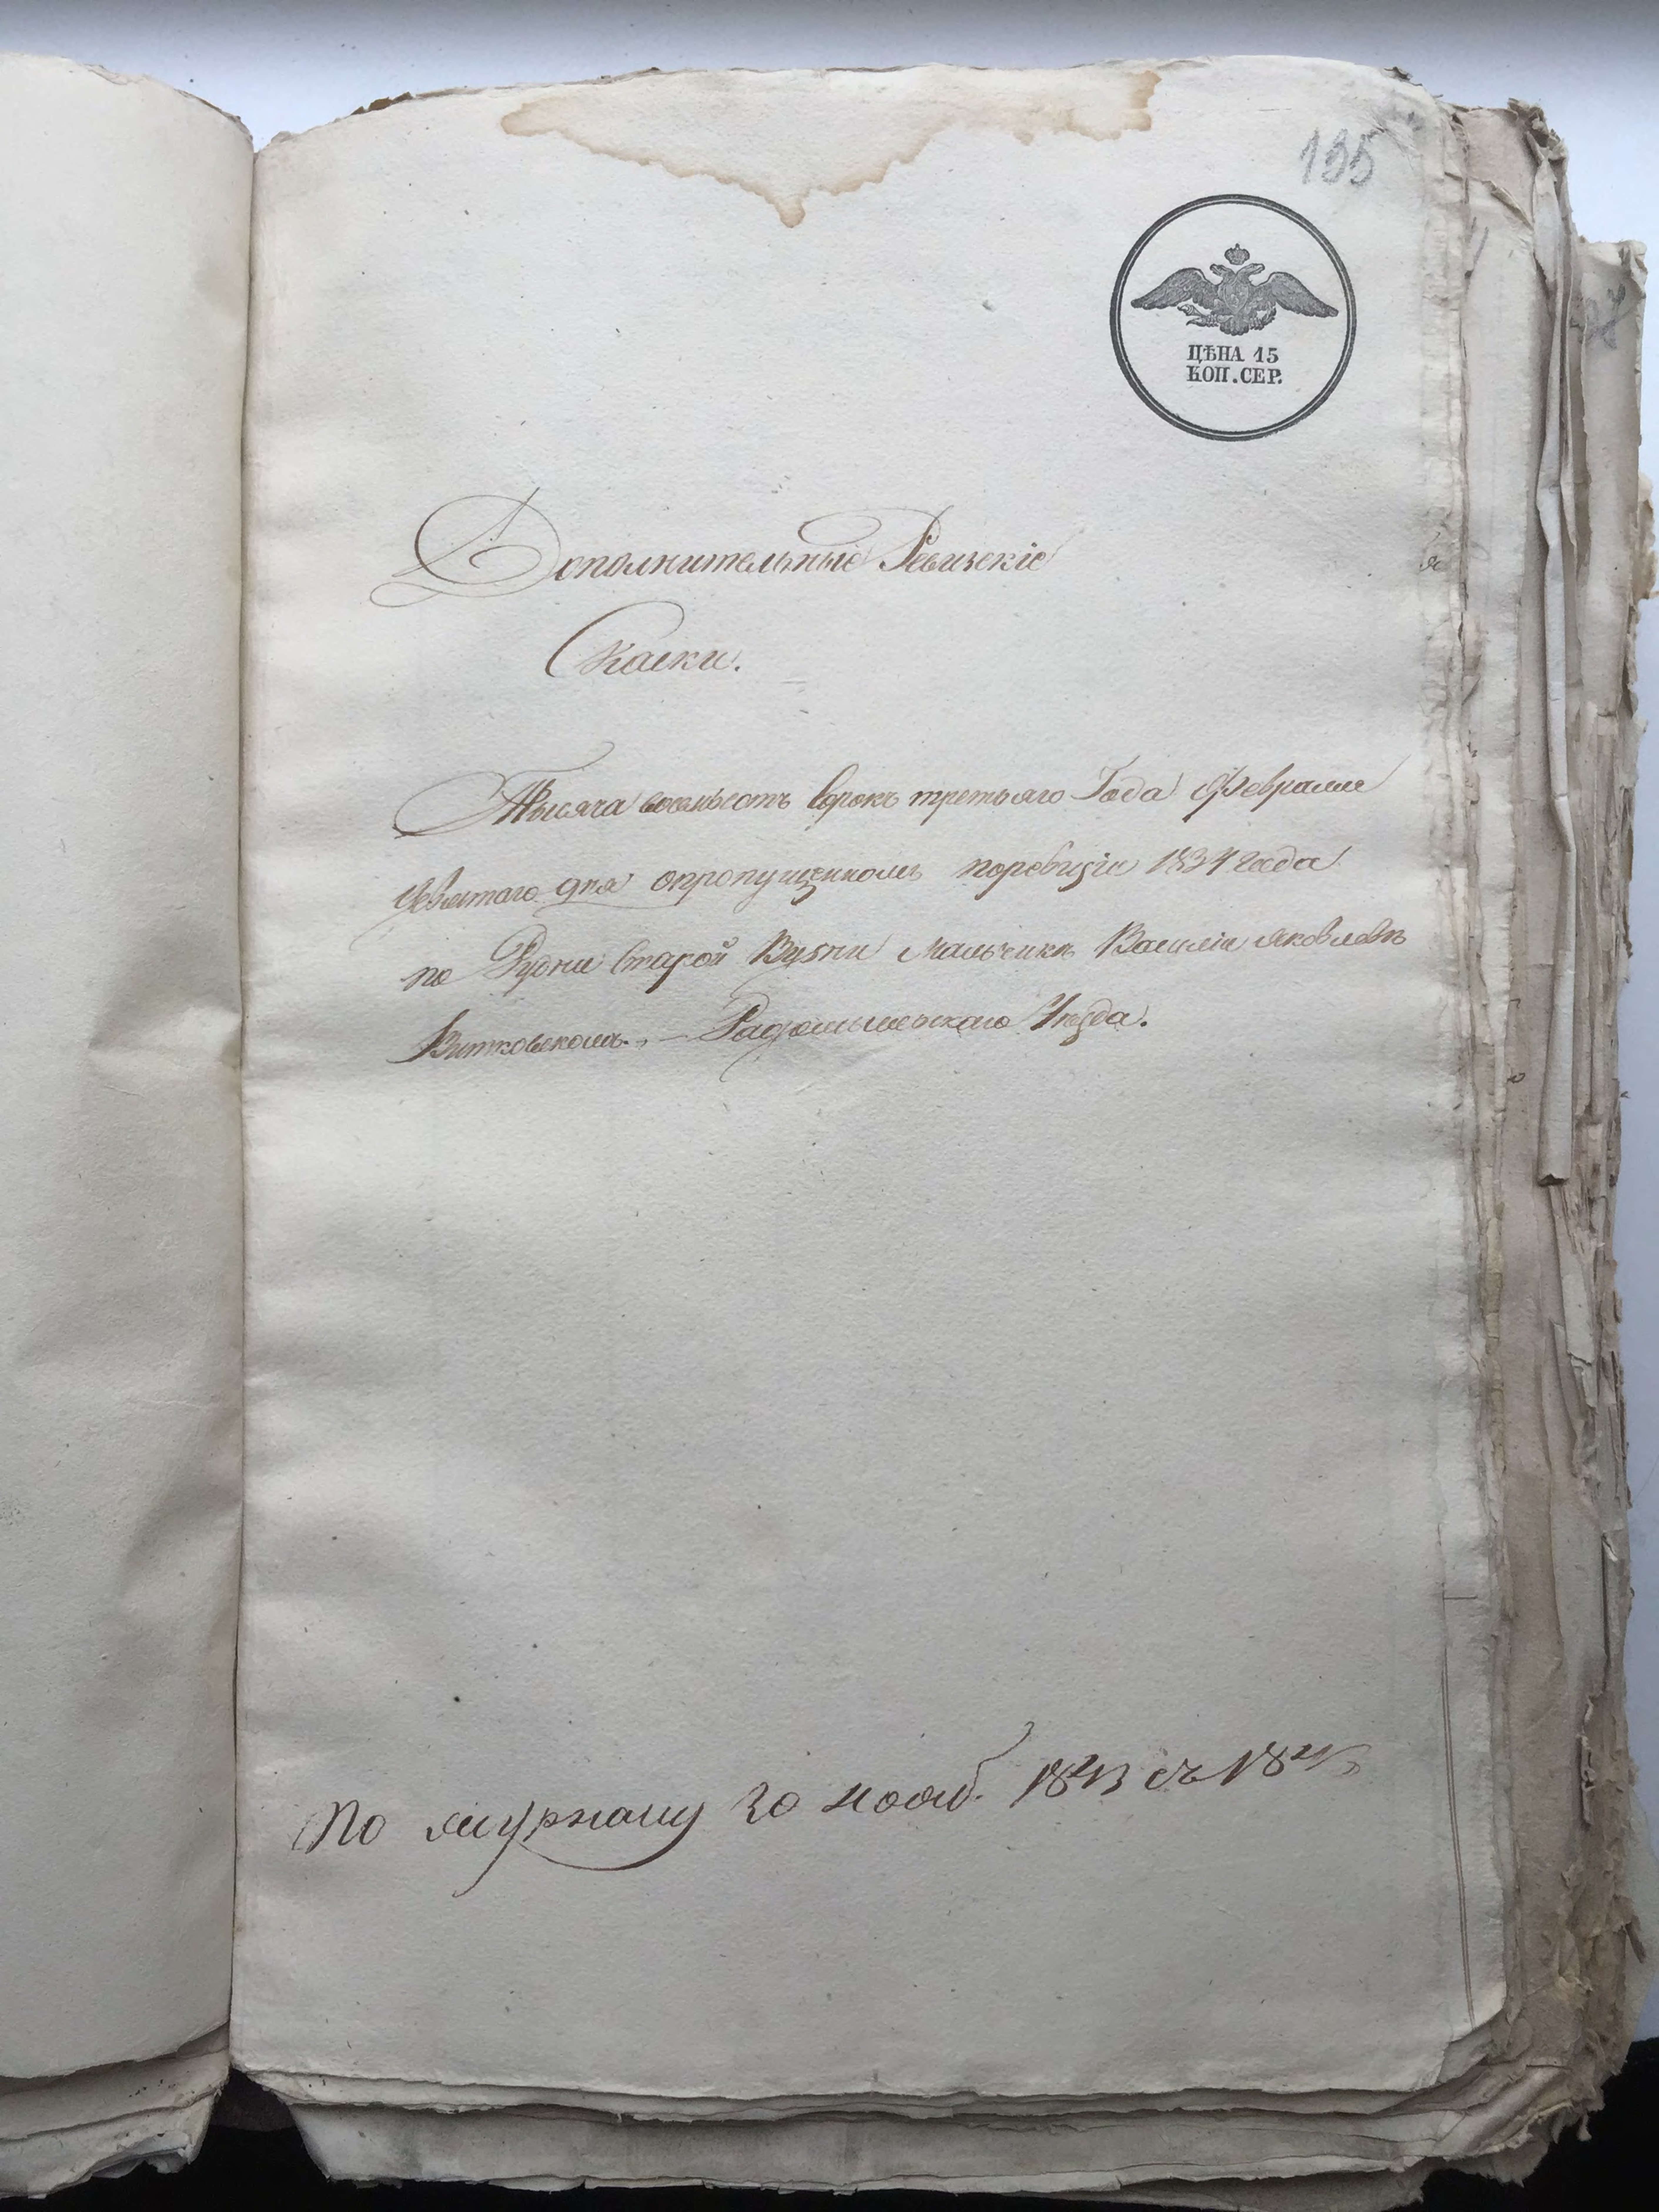 195
ЦѢНА 15
КОП. СЕР.
Дополнительные Ревизскіе
Скаски.
Тысяча восемьсотъ сорокъ третьяго Года Февраля
девятаго дня опропущеномъ поревизіи 1834 года
по Рудни Старой Бузни мальчикѣ Василіи Яковлевѣ
Витковскомъ. – Радомысльскаго Уѣзда.
По журналу 20 нояб. 1843 съ